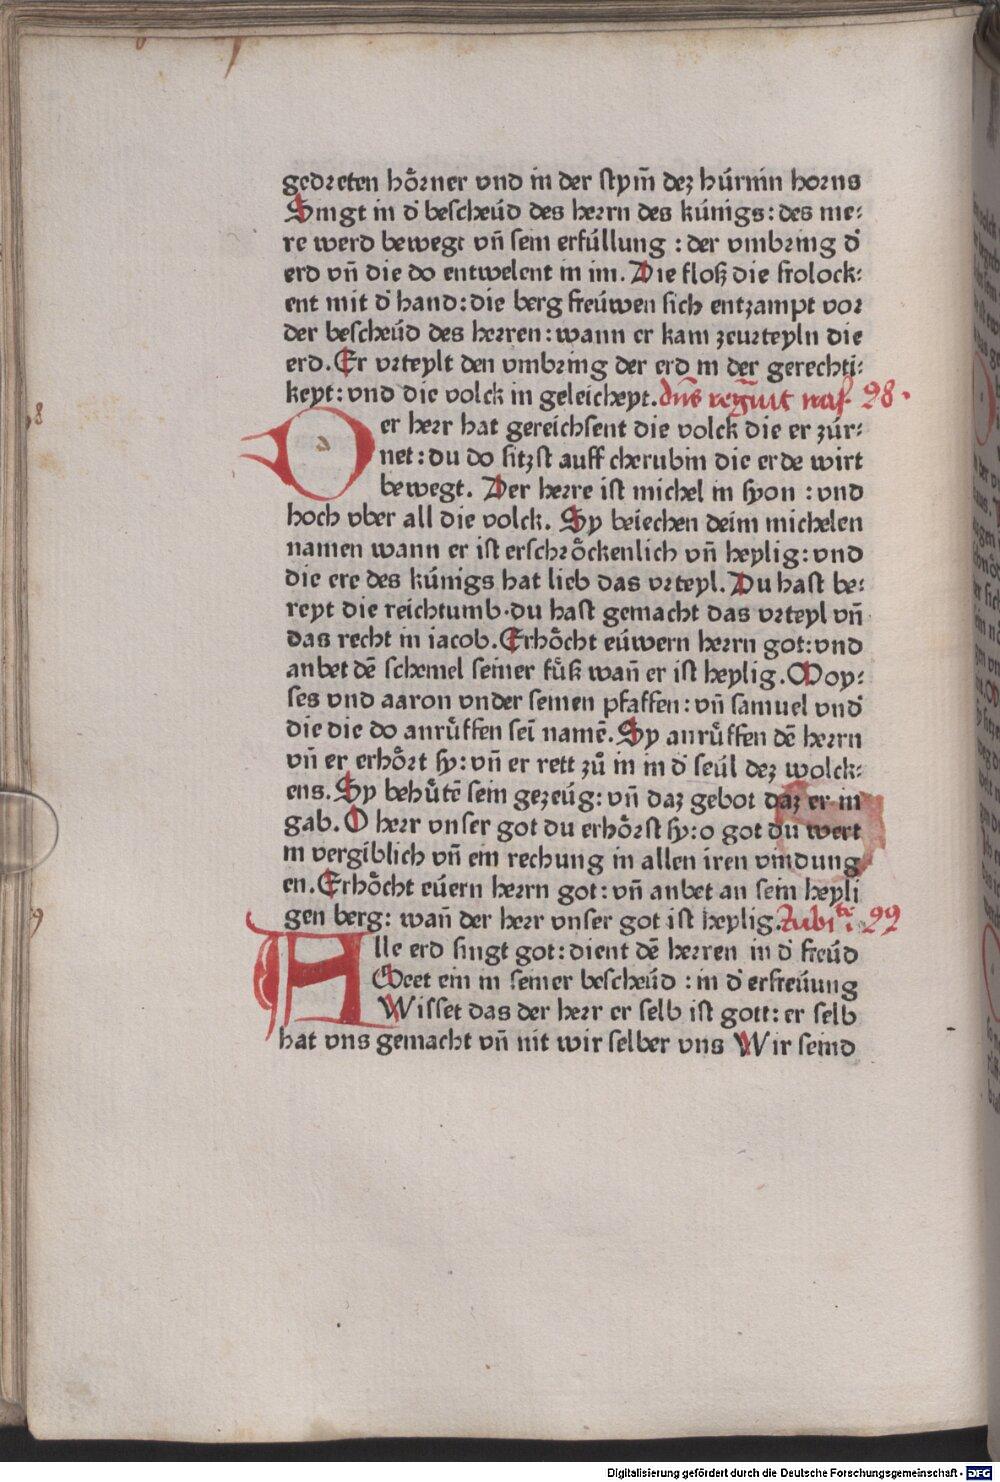 gedreten hoͤrner vnd in der stym̄ dez húrnin horns
Singt in d' bescheúd des herrn des kúnigs: des me:
re werd bewegt vn̄ sein erfúllung : der vmbring d'
erd vn̄ die do entwelent in im. Die floß die frolock:
ent mit d' hand: die berg freúwen sich entzampt vor
der bescheúd des herren: wann er kam zeurteyln die
erd. Er vrteylt den vmbring der erd in der gerechti:
keyt: vnd die volck in geleicheyt. dn̄s regnauit iras 98.
Der herr hat gereichsent die volck die er zúr:
net: du do sitzst auff cherubin die erde wirt
bewegt. Der herre ist michel in syon : vnd
hoch vber all die volck. Sy beiechen deim michelen
namen wann er ist erschroͤckenlich vn̄ heylig: vnd
die ere des kúnigs hat lieb das vrteyl. Du hast be:
reyt die reichtumb·du hast gemacht das vrteyl vn̄
das recht in iacob. Erhoͤcht eúwern herrn got: vnd
anbet dē schemel seiner fuͤß wan̄ er ist heylig. Moy:
ses vnd aaron vnder seinen pfaffen: vn̄ samuel vnd'
die die do anruͤffen sei᷑ namē. Sy anruͤffen dē herrn
vn̄ er erhoͤrt sy: vn̄ er rett zů in in d' seúl dez wolck:
ens. Sy behuͤtē sein gezeúg: vn̄ daz gebot daz er in
gab. O herr vnser got du erhoͤrst sy: o got du wert
in vergiblich vn̄ ein rechung in allen iren vindung
en. Erhoͤcht eúern herrn got: vn̄ anbet an sein heyli
gen berg: wan̄ der herr vnser got ist heylig. Jubi᷑ 99
Alle erd singt got: dient dē herren in d' freúd
Geet ein in seiner bescheúd : in d' erfreúung
Wisset das der herr er selb ist gott: er selb
hat vns gemacht vn̄ nit wir selber vns Wir seind
Digitalisierung gefördert durch die Deutsche Forschungsgemeinschaft - DFG